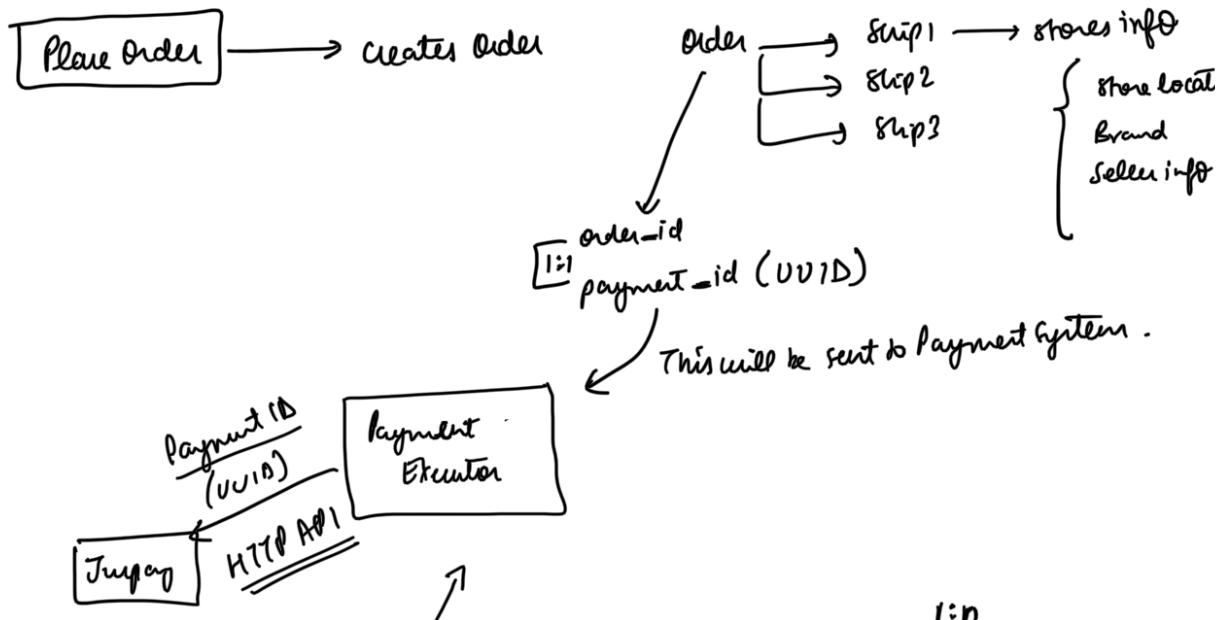 Place Order
creates Order
Order
Ship1
stores info
Ship2
Ship3
store locat
Brand
Seller info
order_id
1:1
payment_id (UUID)
This will be sent to Payment System.
Payment ID
(UUID)
Payment
Executor
HTTP API
Juspay
1:n